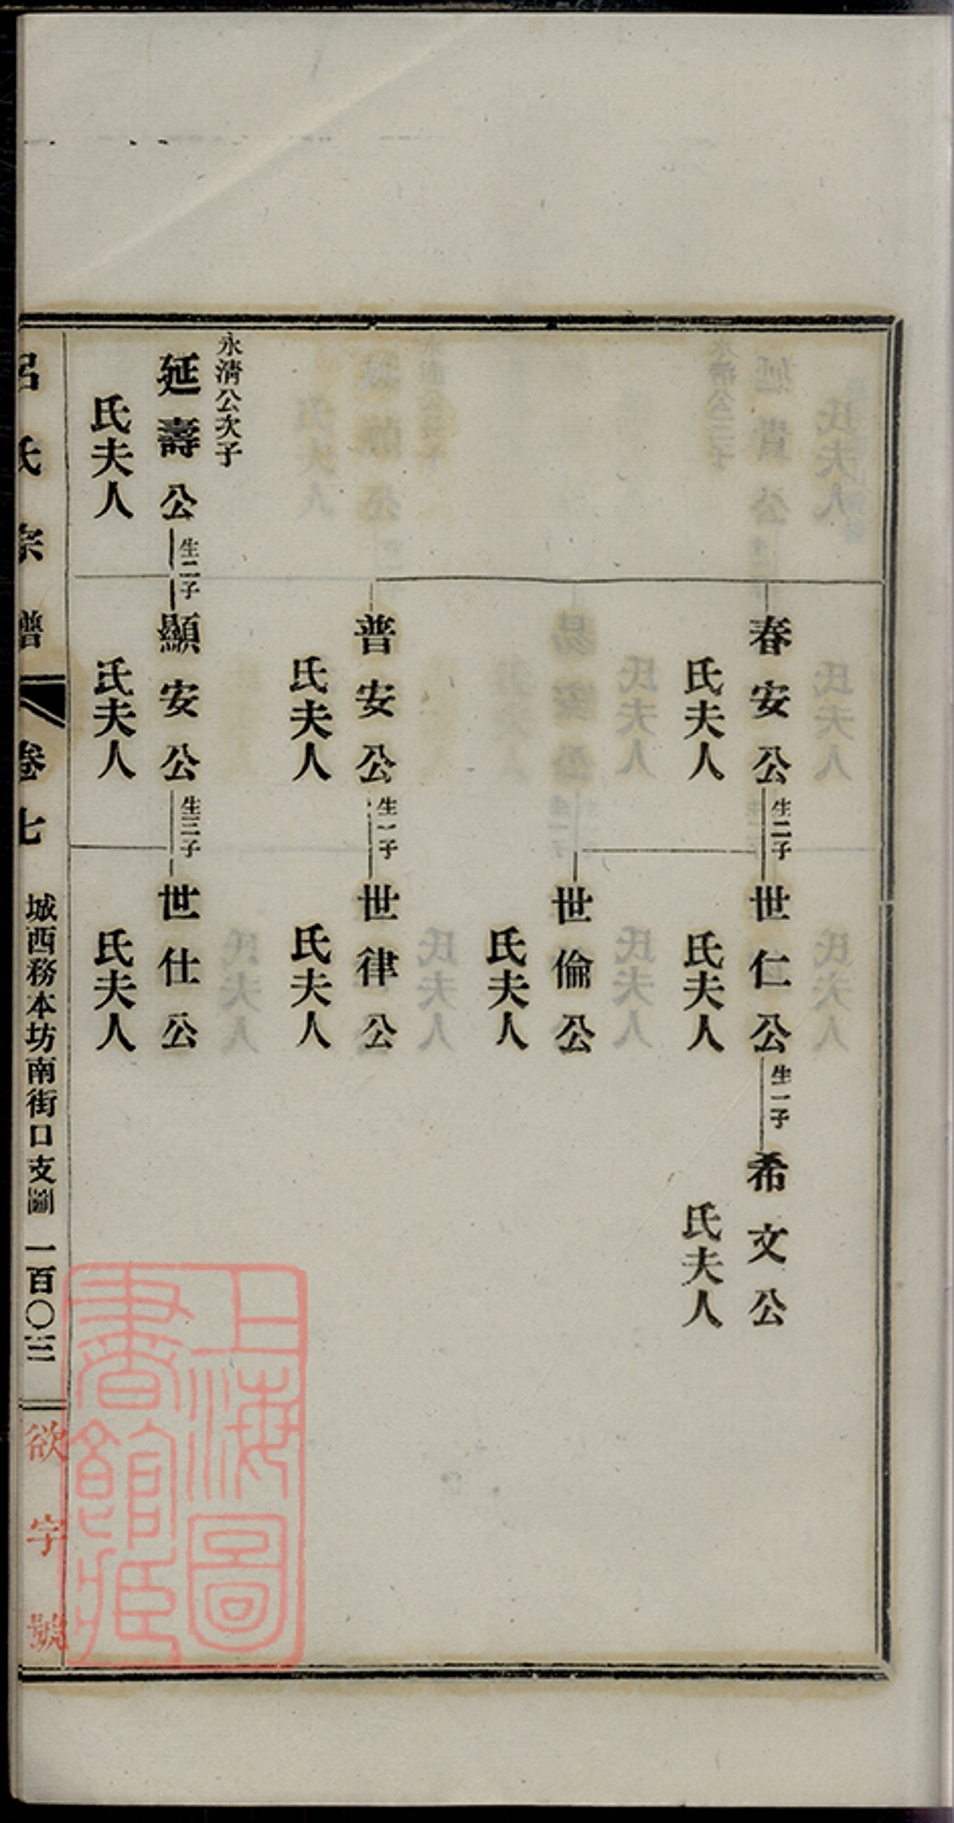 春安公
生二子
世仁公
生一子
希文公
氏夫人
氏夫人
氏夫人
世倫公
氏夫人
普安公
生一子
世律公
氏夫人
氏夫人
永清公次子
延壽公
生二子
顯安公
生三子
世仕公
氏夫人
氏夫人
氏夫人
呂氏宗譜
卷七
城西務本坊南街口支圖
一百〇三
欲字號
上海圖
書館藏